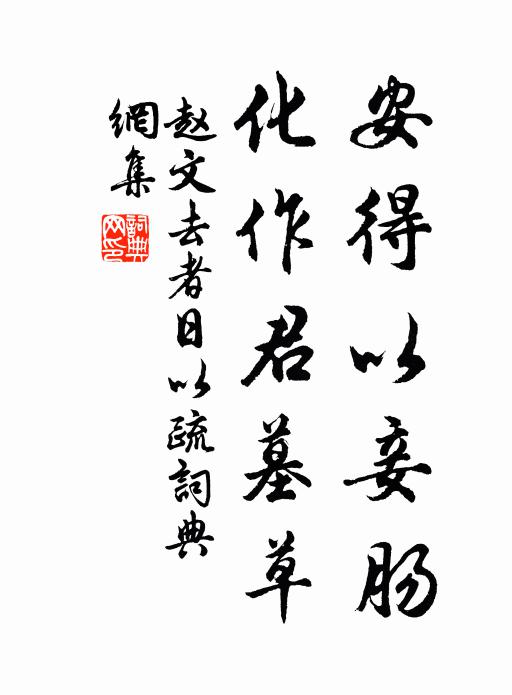 安得以妾肠
化作君墓草
赵文去者日以疏詞典
網集
詞典
网印